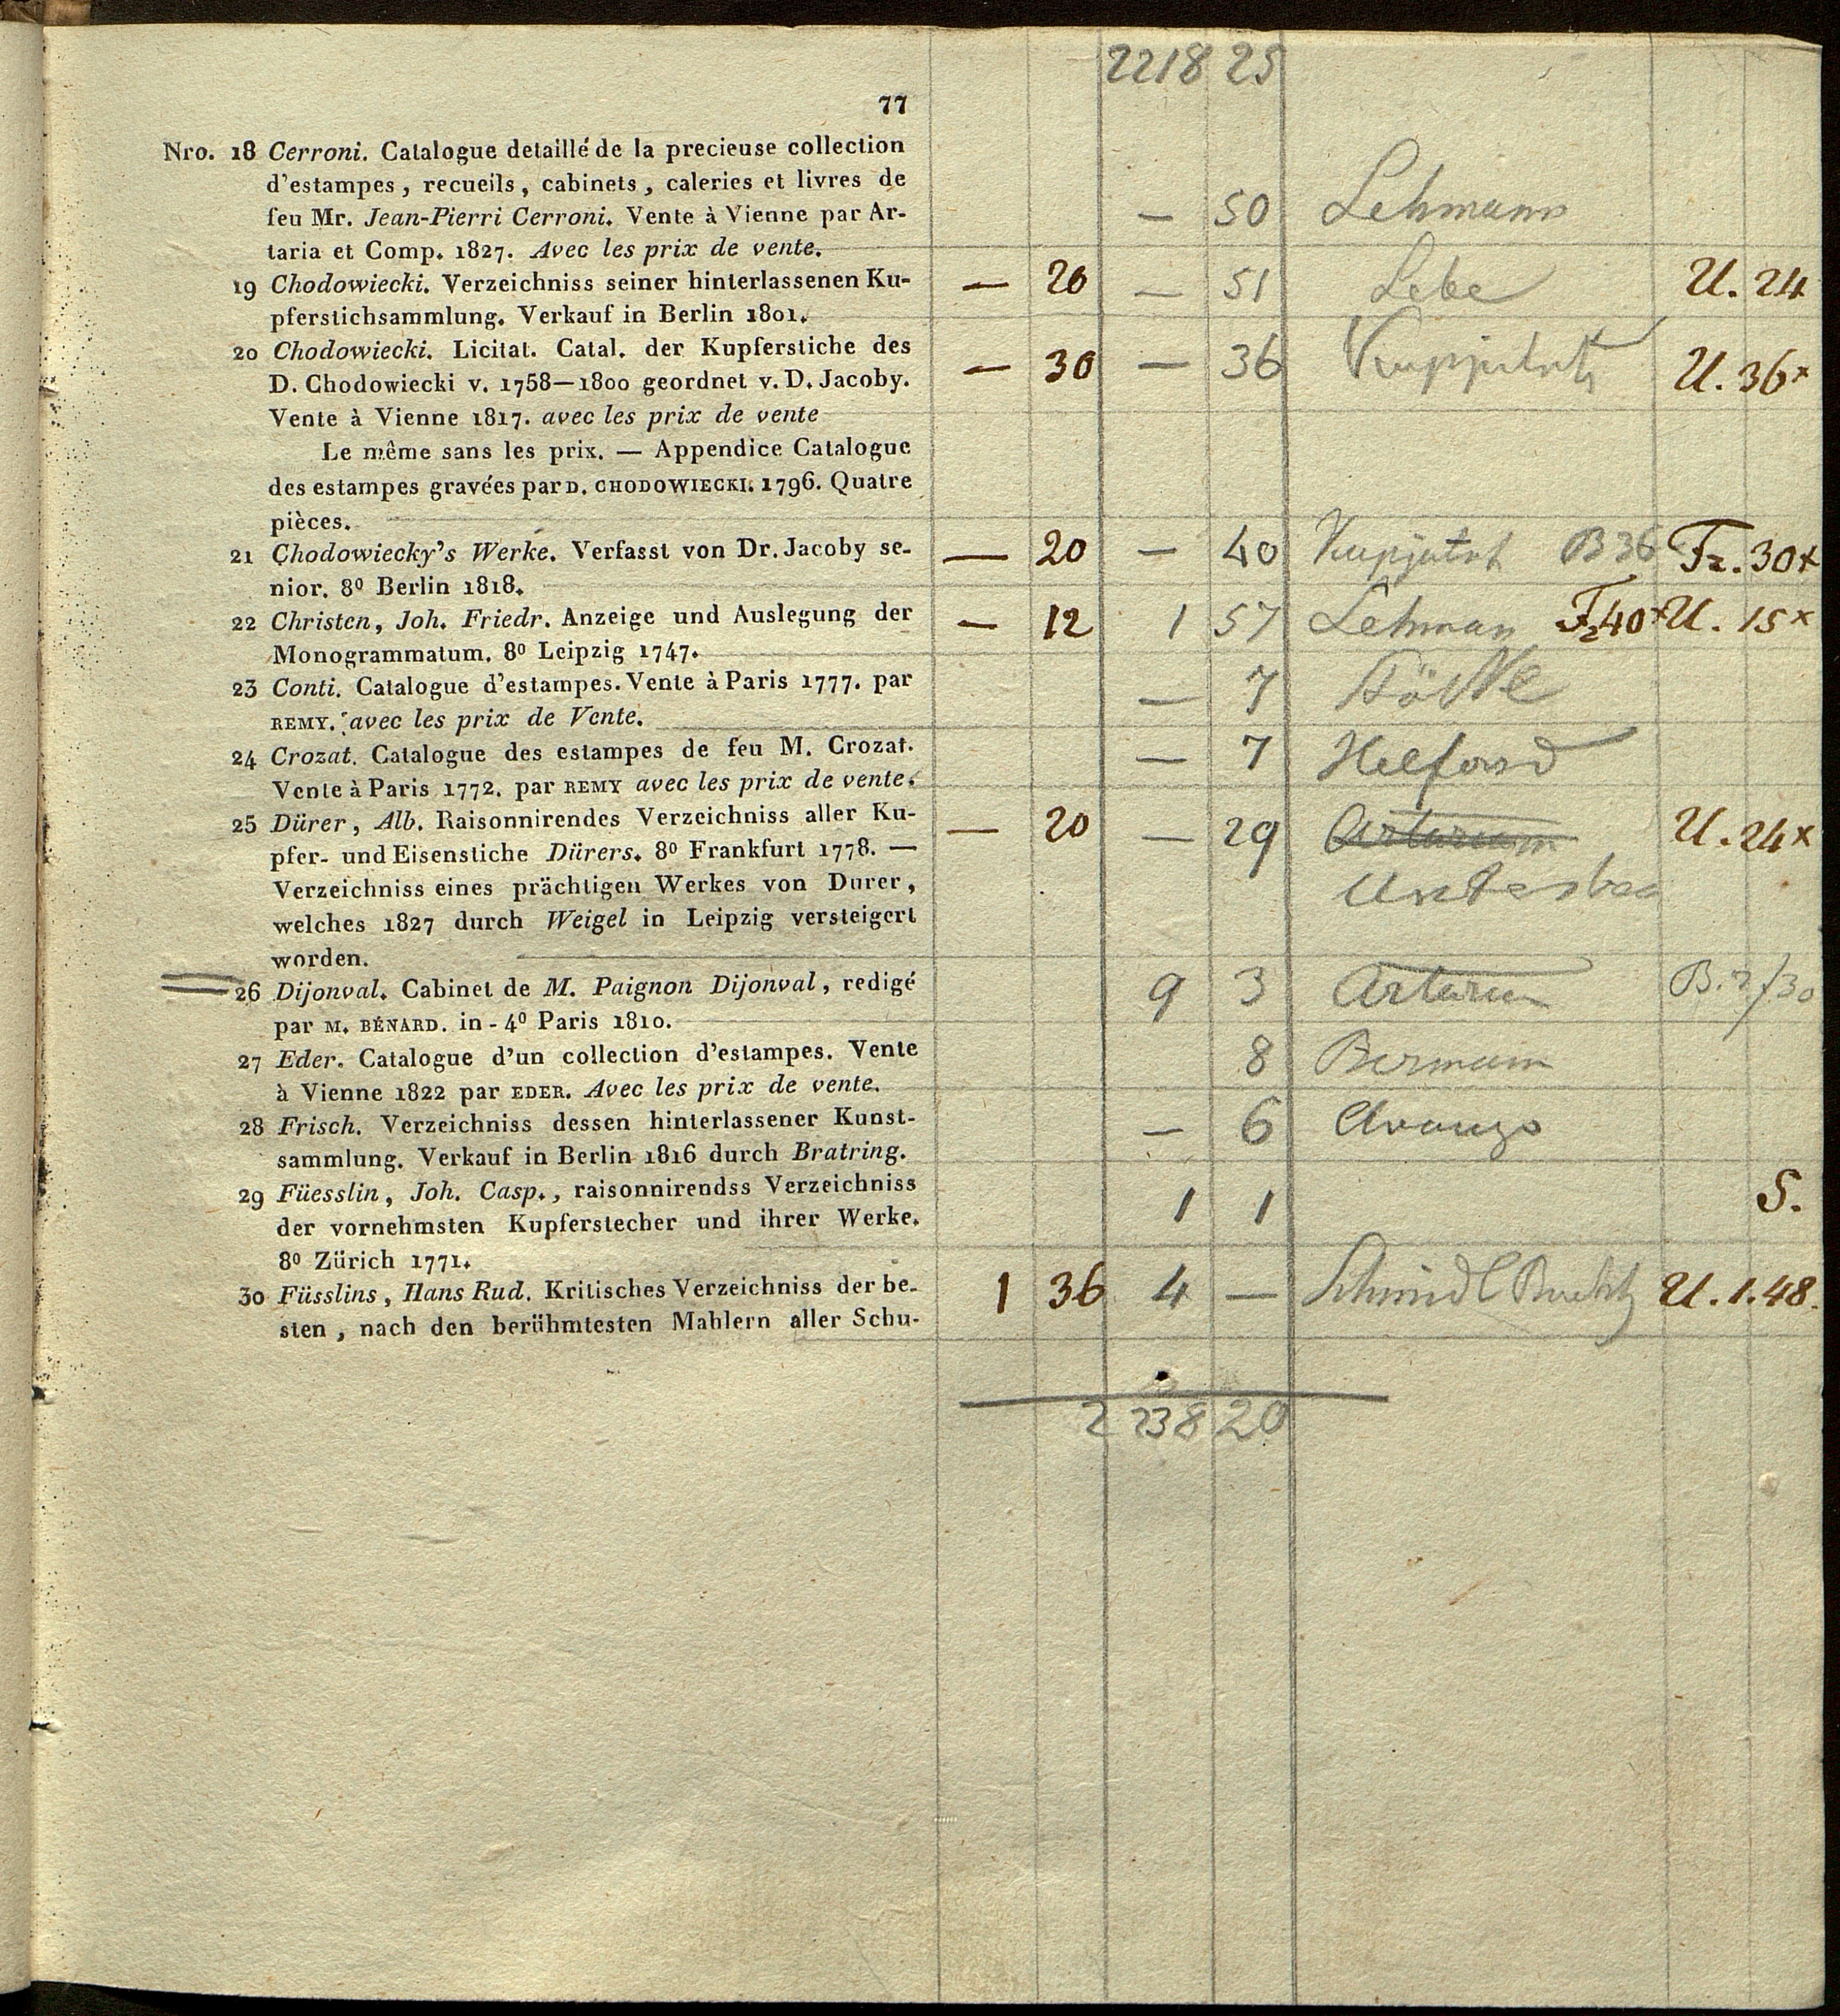 2218 25
77
Nro. 18 Cerroni. Catalogue detaillé de la precieuse collection
d'estampes, recueils, cabinets, caleries et livres de
feu Mr. Jean-Pierri Cerroni. Vente à Vienne par Ar-
— 50 Lehmann
taria et Comp. 1827. Avec les prix de vente.
19 Chodowiecki. Verzeichniss seiner hinterlassenen Ku-
— 20 — 51 U. 24
pferstichsammlung. Verkauf in Berlin 1801.
20 Chodowiecki. Licitat. Catal. der Kupferstiche des
— 30 — 36 U. 36x
D. Chodowiecki v. 1758—1800 geordnet v. D. Jacoby.
Vente à Vienne 1817. avec les prix de vente
Le même sans les prix. — Appendice Catalogue
des estampes gravées par D. CHODOWIECKI. 1796. Quatre
pièces.
21 Chodowiecky's Werke. Verfasst von Dr. Jacoby se-
— 20 — 40 B 36 Fz. 30x
nior. 8⁰ Berlin 1818.
22 Christen, Joh. Friedr. Anzeige und Auslegung der
— 12 1 57 Lehman Fz 40x U. 15x
Monogrammatum. 8⁰ Leipzig 1747.
23 Conti. Catalogue d'estampes. Vente à Paris 1777. par
— 7
REMY. avec les prix de Vente.
24 Crozat. Catalogue des estampes de feu M. Crozat.
— 7
Vente à Paris 1772. par REMY avec les prix de vente.
25 Dürer, Alb. Raisonnirendes Verzeichniss aller Ku-
— 20 — 29 Artaria U. 24x
pfer- und Eisenstiche Dürers. 8⁰ Frankfurt 1778. —
Verzeichniss eines prächtigen Werkes von Durer,
welches 1827 durch Weigel in Leipzig versteigert
worden.
26 Dijonval. Cabinet de M. Paignon Dijonval, redigé
9 3 Artaria B. 7/30
par M. BÉNARD. in-4⁰ Paris 1810.
27 Eder. Catalogue d'un collection d'estampes. Vente
8 Bermann
à Vienne 1822 par EDER. Avec les prix de vente.
28 Frisch. Verzeichniss dessen hinterlassener Kunst-
— 6
sammlung. Verkauf in Berlin 1816 durch Bratring.
29 Füesslin, Joh. Casp., raisonnirendss Verzeichniss
1 1 S.
der vornehmsten Kupferstecher und ihrer Werke.
8⁰ Zürich 1771.
30 Füsslins, Hans Rud. Kritisches Verzeichniss der be-
1 36 4 — Schmidl U. 1.48.
sten, nach den berühmtesten Mahlern aller Schu-
2238 20